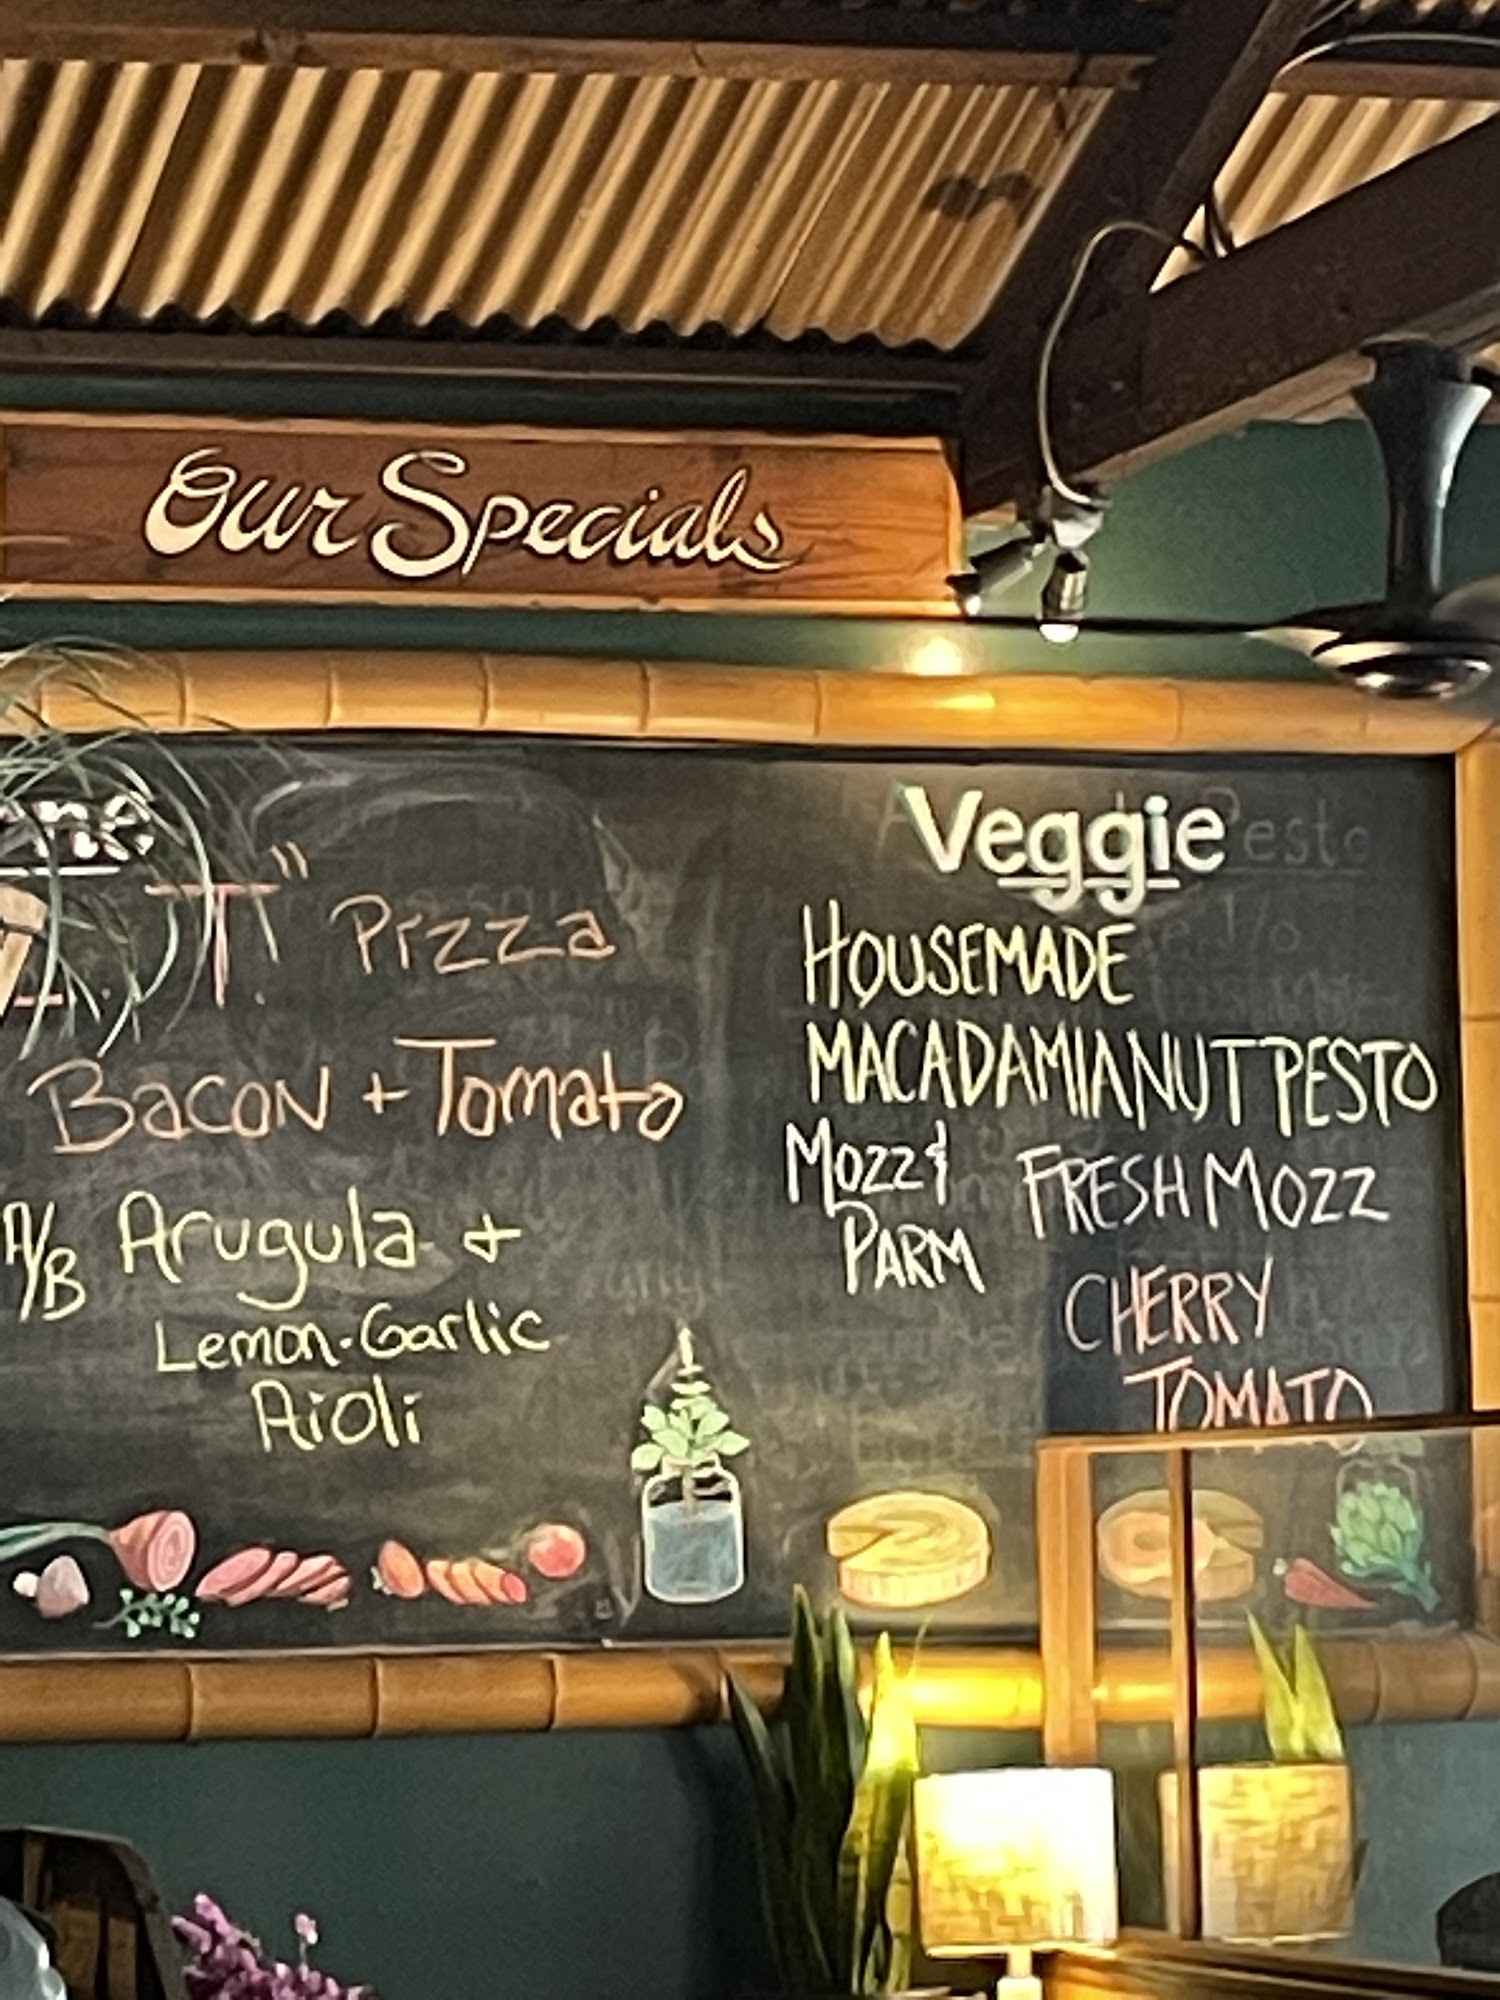 Our Specials
T." Pizza
Bacon + Tomato
A/B Arugula +
Lemon-Garlic
Aioli
Veggie
HOUSEMADE
MACADAMIA NUT PESTO
MOZZ &
PARM
FRESH MOZZ
CHERRY
TOMATO